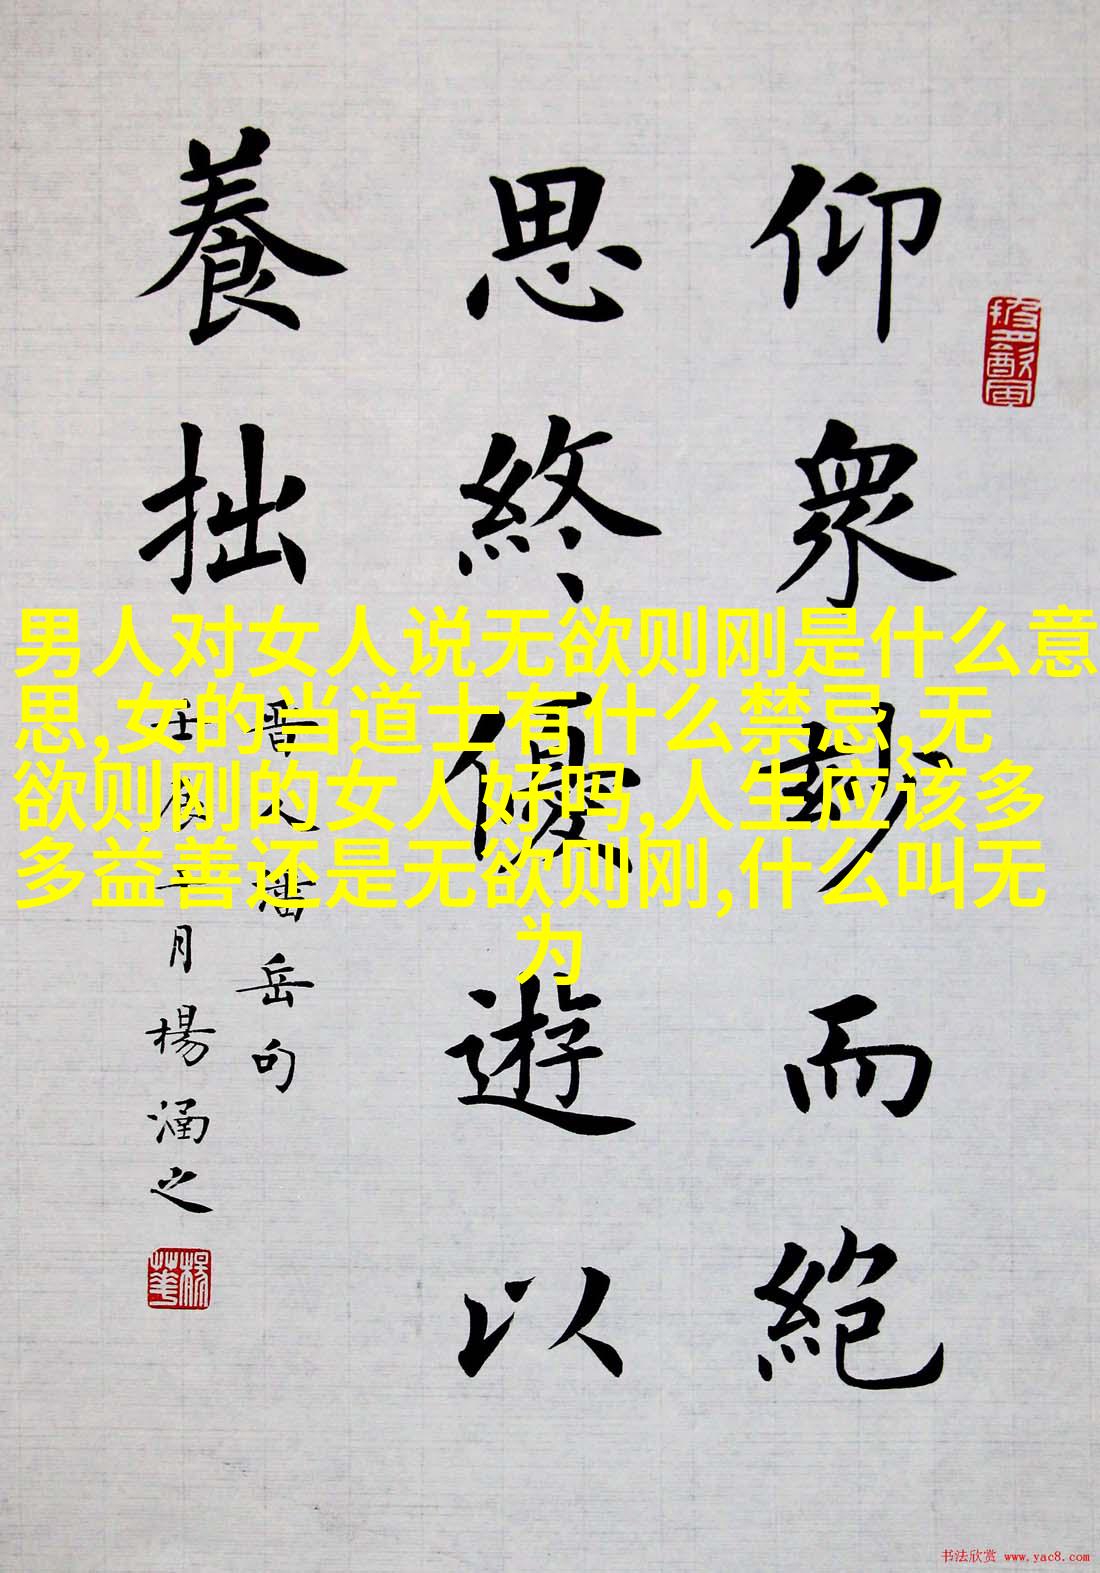 仰衆妙而絕
思終優遊以
養拙
晉人潘岳句
壬辰月楊涵之
男人对女人说无欲则刚是什么意
思,女的当道士有什么禁忌,无
欲则刚的女人好吗,人生应该多
多益善还是无欲则刚,什么叫无
为
书法欣赏 www.yac8.com